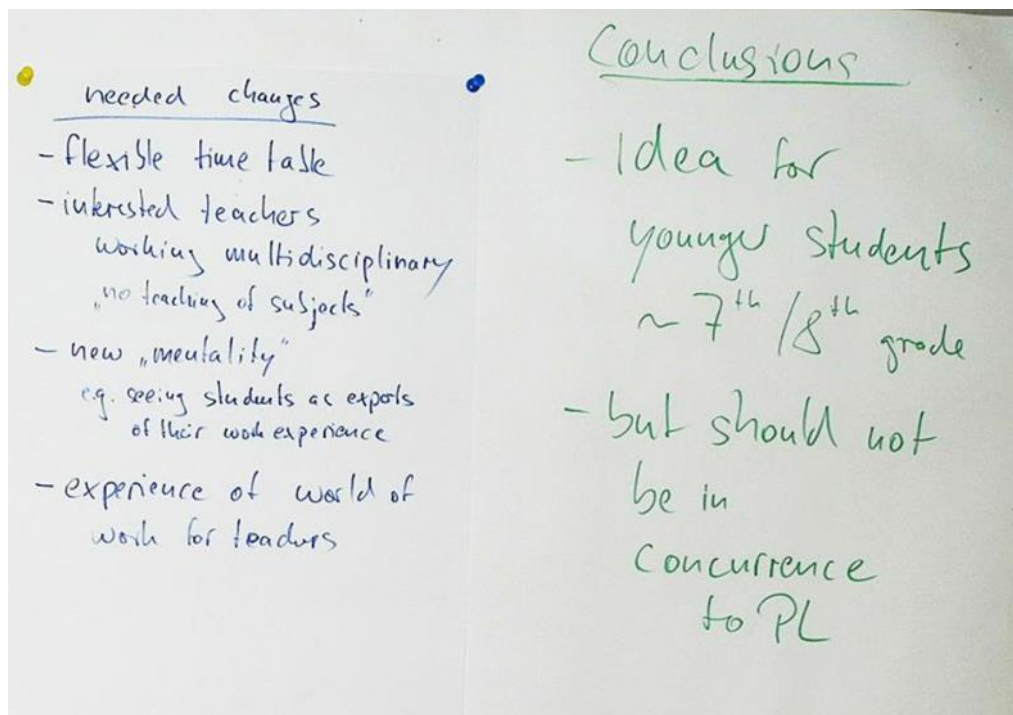 needed changes
- flexible time table
- interested teachers
working multidisciplinary
„no teaching of subjects“
- new „mentality“
e.g. seeing students as experts
of their work experience
- experience of world of
work for teachers
Conclusions
- Idea for
younger students
~ 7th /8th grade
- but should not
be in
concurrence
to PL